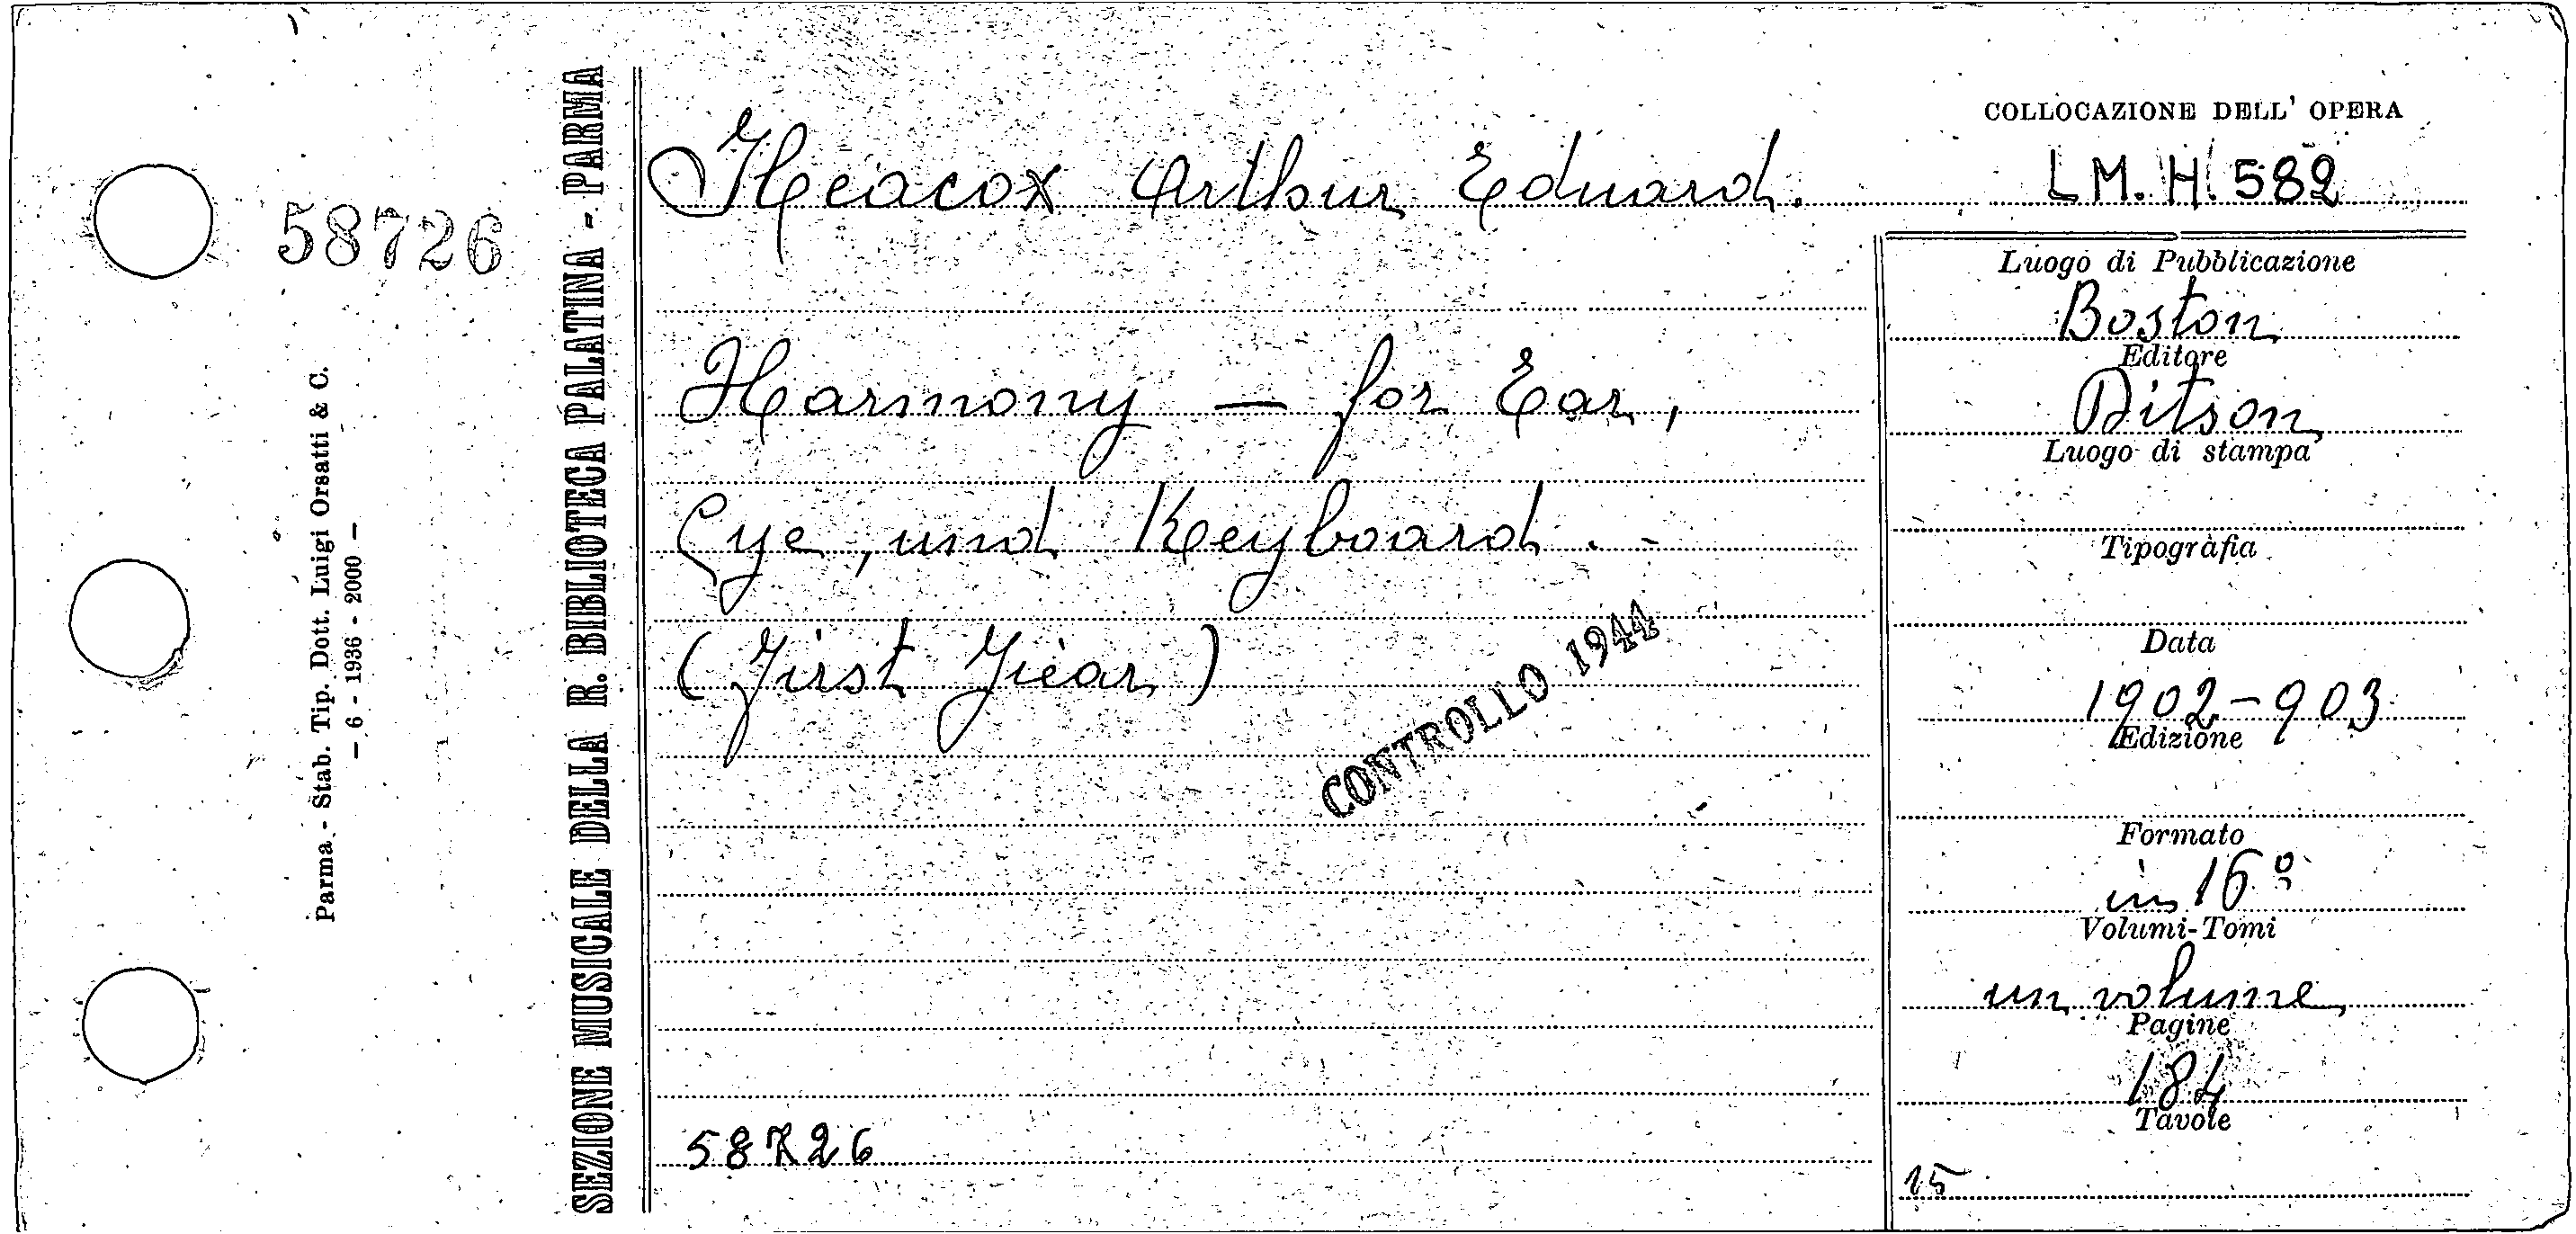 58726
Parma - Stab. Tip. Dott. Luigi Orsatti & C.
- 6 - 1936 - 2000 -
SEZIONE MUSICALE DELLA R. BIBLIOTECA PALATINA - PARMA
Heacox Arthur Eduard.
Harmony — for Ear,
Eye, und Keyboard. -
(First Jiear)
CONTROLLO 1944
58726
COLLOCAZIONE DELL' OPERA
L M. H. 582
Luogo di Pubblicazione
Boston
Editore
Ditson
Luogo di stampa
Tipografia
Data
1902-903
Edizione
Formato
in 16º
Volumi-Tomi
un volume
Pagine
184
Tavole
15